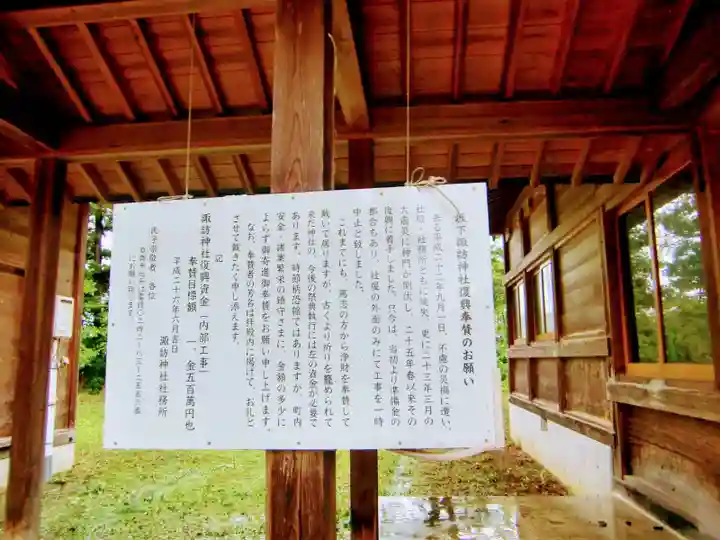 坂下諏訪神社復興奉賛のお願い
去る平成二十二年九月一日、不慮の災禍に遭い、
社殿・社務所ともに焼失、更に二十三年三月の
大震災に神門が倒伏し、二十五年春以来その
復興に着手しました。只今は、当初より準備金の
都合もあり、社殿の外郭のみにて工事を一時
中止と致しました。
これまでにも、篤志の方から浄財を奉賛して
戴いて居りますが、古くより祈りを籠められて
来た神社の、今後の祭典執行には左の資金が必要で
あります。時節柄恐縮ではありますが、町内
安全・諸業繁栄の鎮守さまに、金額の多少に
よらず御寄進御奉賛をお願い申し上げます。
なお、奉賛者の芳名は拝殿内に掲げて、お礼と
させて戴きたく申し添えます。
記
諏訪神社復興資金（内部工事）
奉賛目標額 一、金五百萬円也
平成二十六年六月吉日
諏訪神社社務所
氏子崇敬者 各位